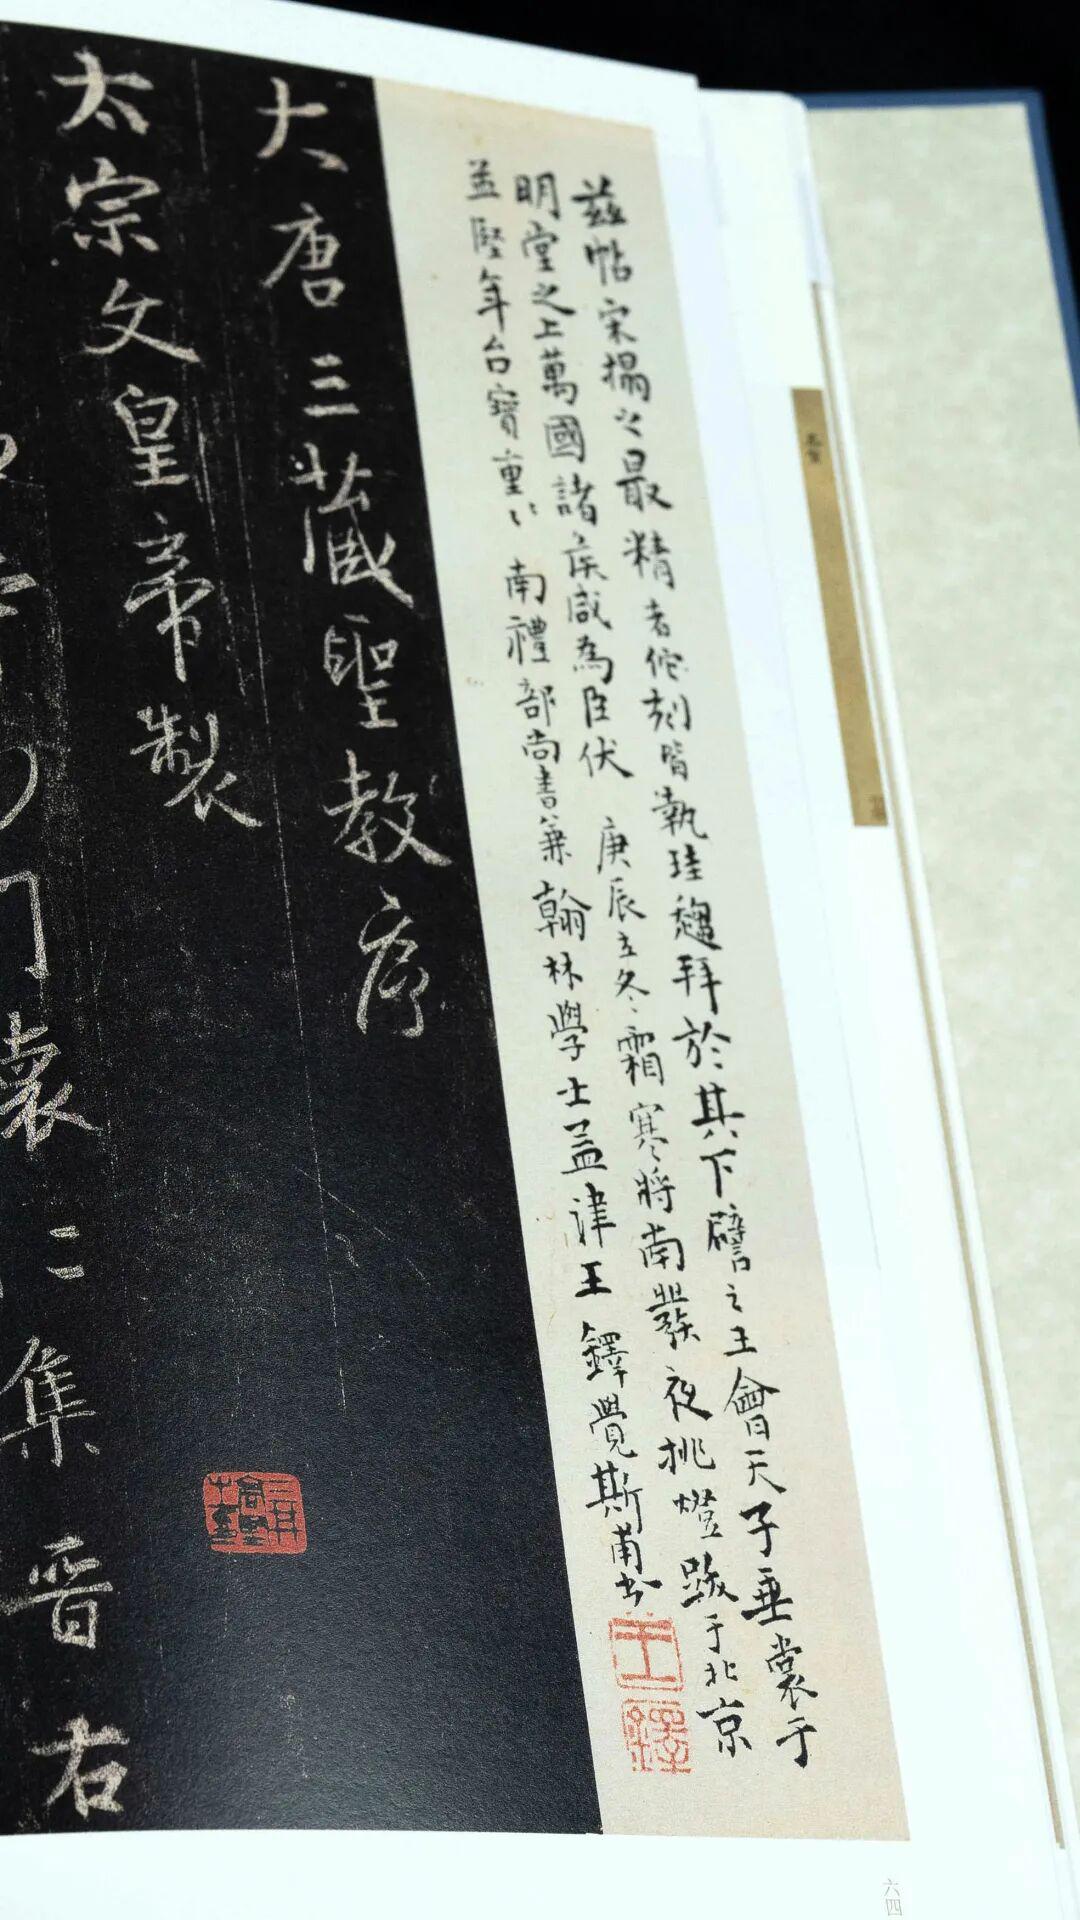 茲帖宋搨之最精者佗刻皆執珪趨拜於其下譬之王會天子垂裳于
明堂之上萬國諸侯咸為臣伏 庚辰立冬霜寒將南發夜挑燈跋于北京
孟堅年台寶重〻 南禮部尚書兼翰林學士孟津王鐸覺斯甫書
王鐸
大唐三藏聖教序
太宗文皇帝製
門懷仁集晉右
六四